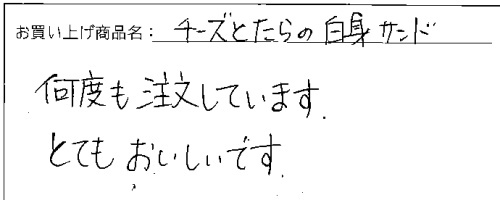 お買い上げ商品名: チーズとたらの白身サンド
何度も注文しています.
とてもおいしいです.